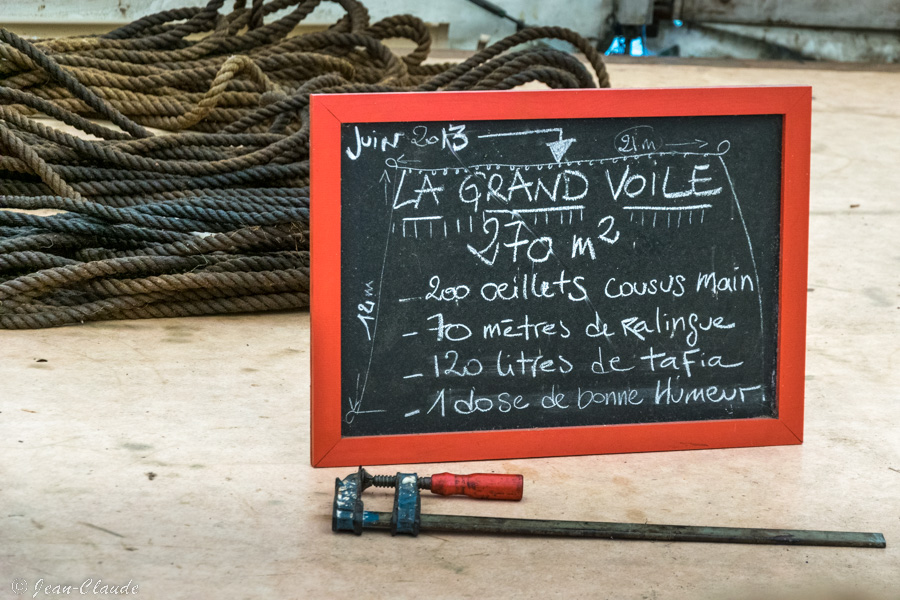 Juin 2013
21 m
LA GRAND VOILE
270 m²
12 m
- 200 oeillets cousus main
- 70 mètres de Ralingue
- 120 litres de tafia
- 1 dose de bonne Humeur
© Jean-Claude